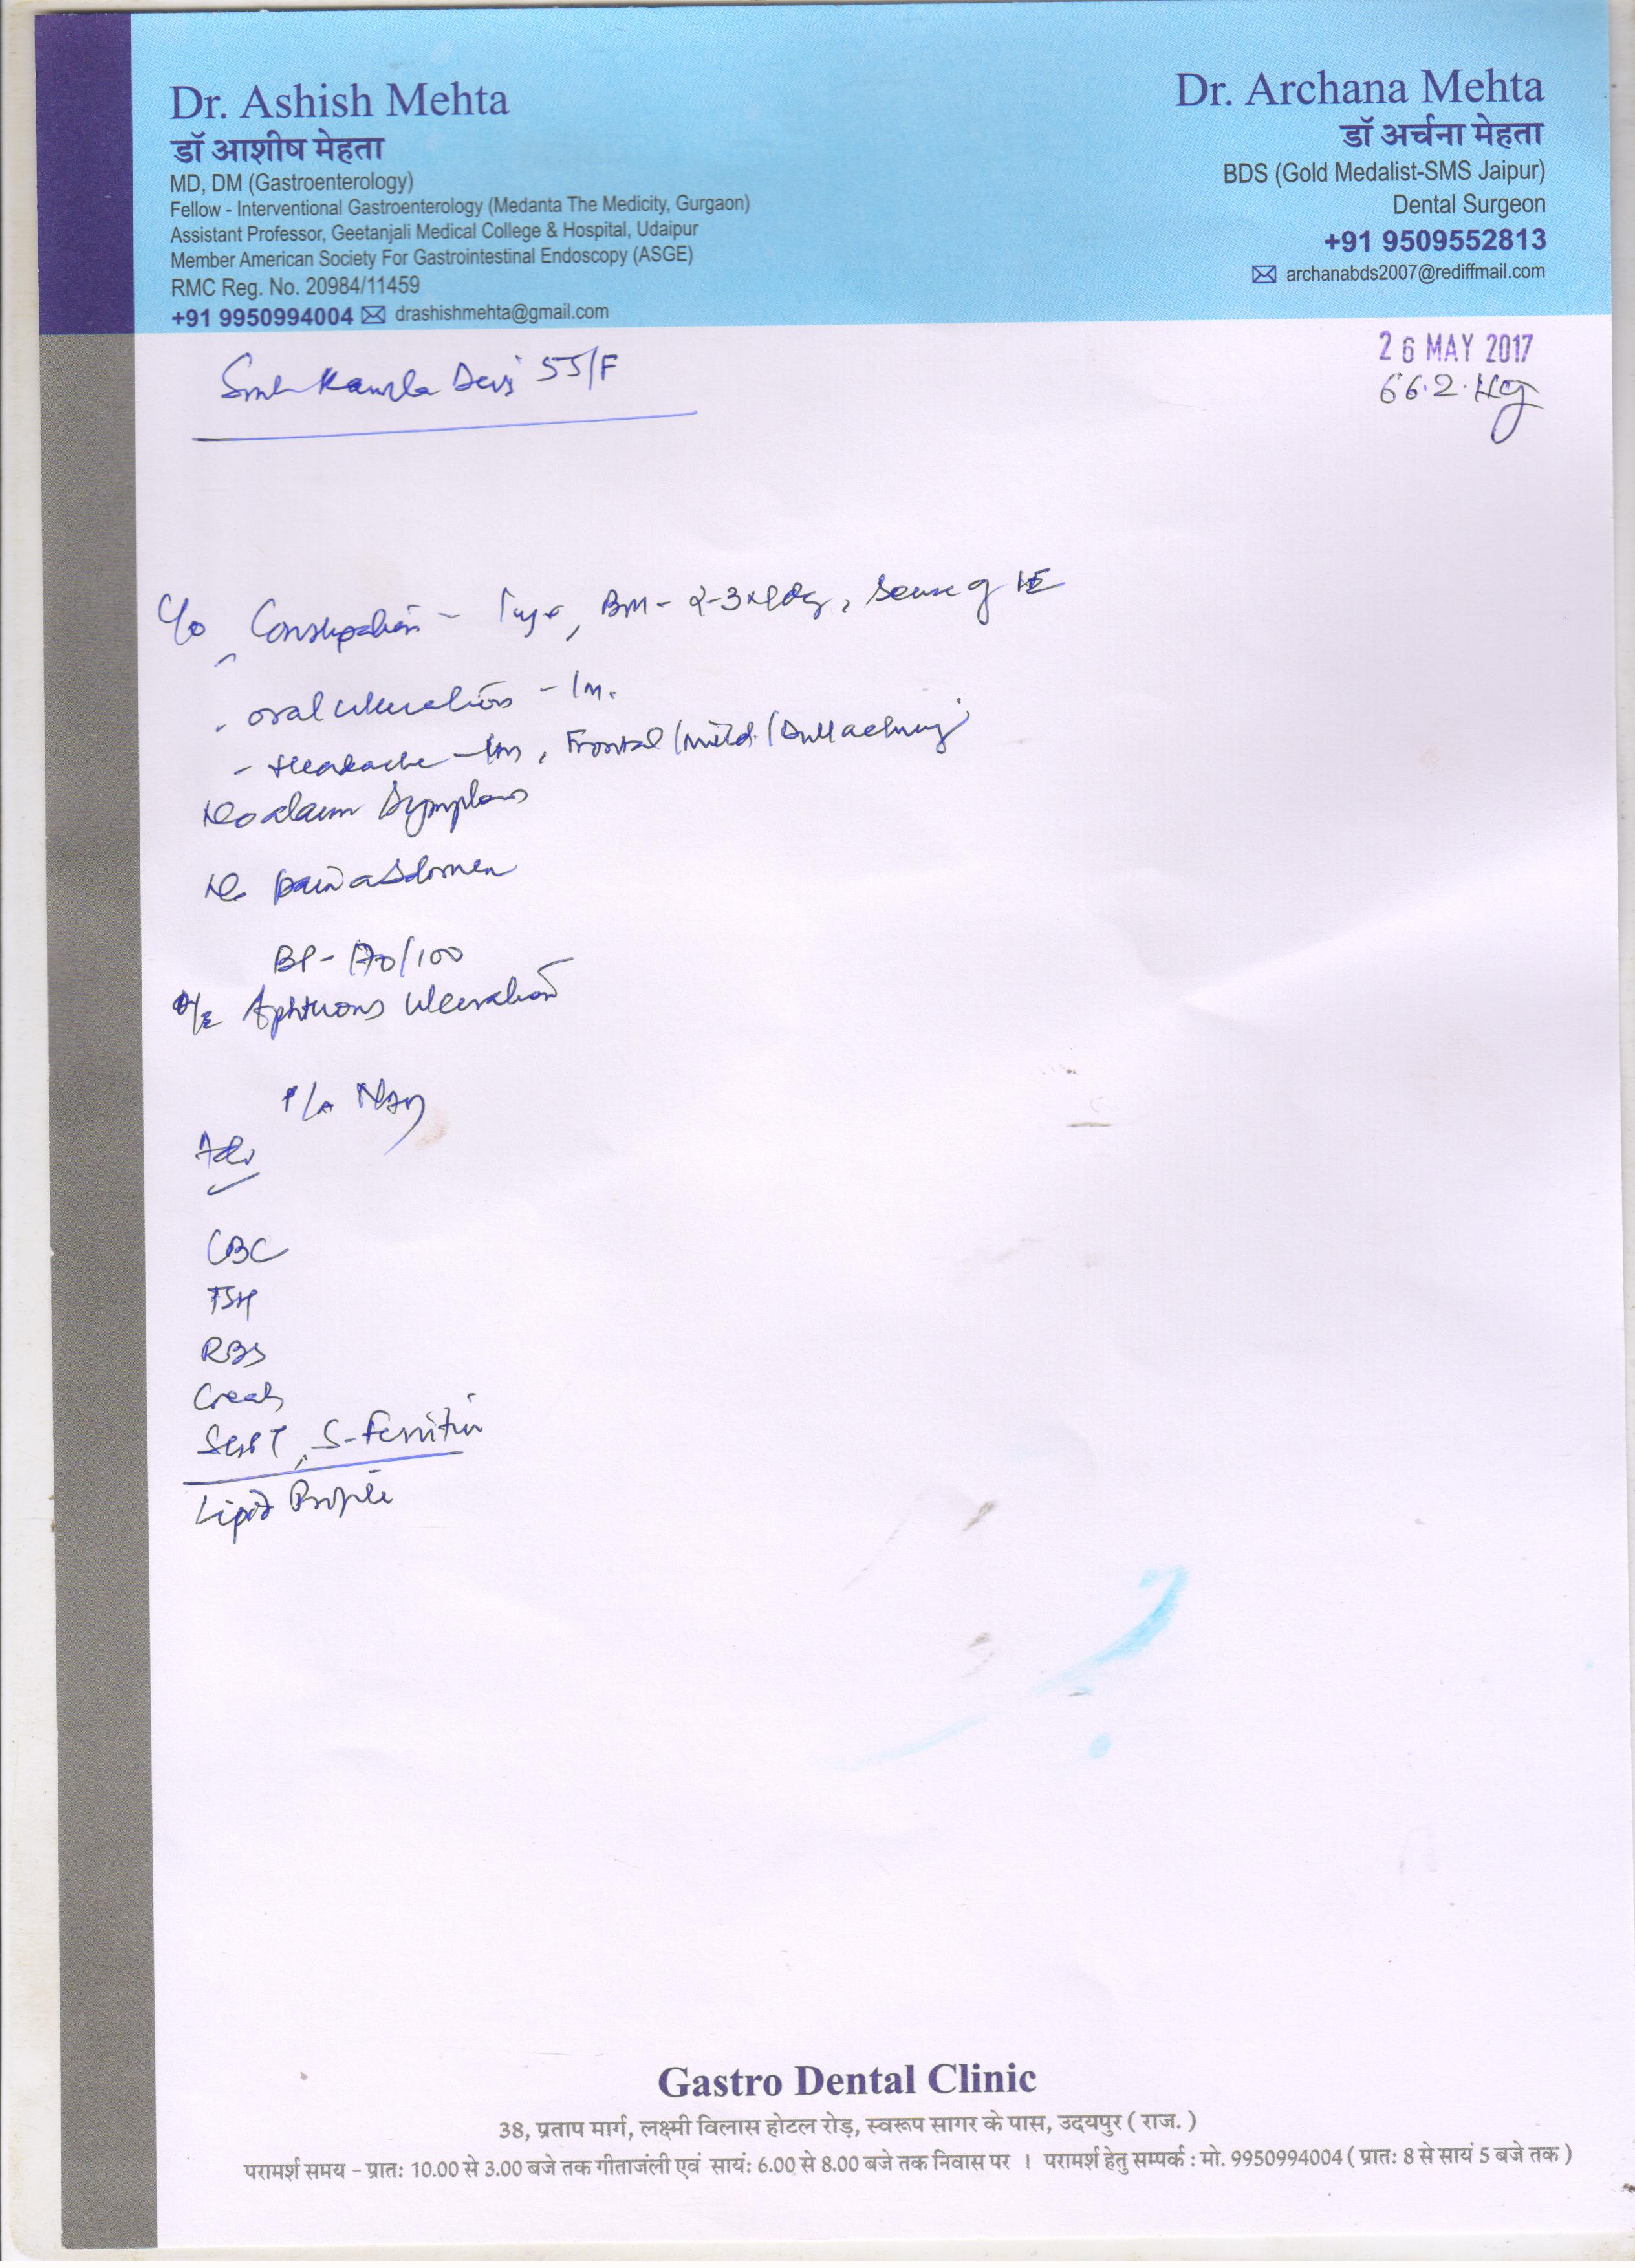 Dr. Ashish Mehta
डॉ आशीष मेहता
MD, DM (Gastroenterology)
Fellow - Interventional Gastroenterology (Medanta The Medicity, Gurgaon)
Assistant Professor, Geetanjali Medical College & Hospital, Udaipur
Member American Society For Gastrointestinal Endoscopy (ASGE)
RMC Reg. No. 20984/11459
+91 9950994004 drashishmehta@gmail.com
Dr. Archana Mehta
डॉ अर्चना मेहता
BDS (Gold Medalist-SMS Jaipur)
Dental Surgeon
+91 9509552813
archanabds2007@rediffmail.com
26 MAY 2017
66.2 Kg
Smt Kamla Devi 55/F
C/o Constipation - BM - 2-3x/day, Sense of IE
- oral ulceration - 1m.
- Headache - 1m, Frontal/mild/Dull aching
No alarm Symptoms
No pain abdomen
BP - 170/100
O/E Aphthous ulceration
P/A NAD
Adv
CBC
TSH
RBS
Creat
SGPT, S-Ferritin
Lipid Profile
Gastro Dental Clinic
38, प्रताप मार्ग, लक्ष्मी विलास होटल रोड़, स्वरूप सागर के पास, उदयपुर ( राज. )
परामर्श समय - प्रातः 10.00 से 3.00 बजे तक गीताजंली एवं सायं: 6.00 से 8.00 बजे तक निवास पर । परामर्श हेतु सम्पर्क : मो. 9950994004 ( प्रातः 8 से सायं 5 बजे तक )